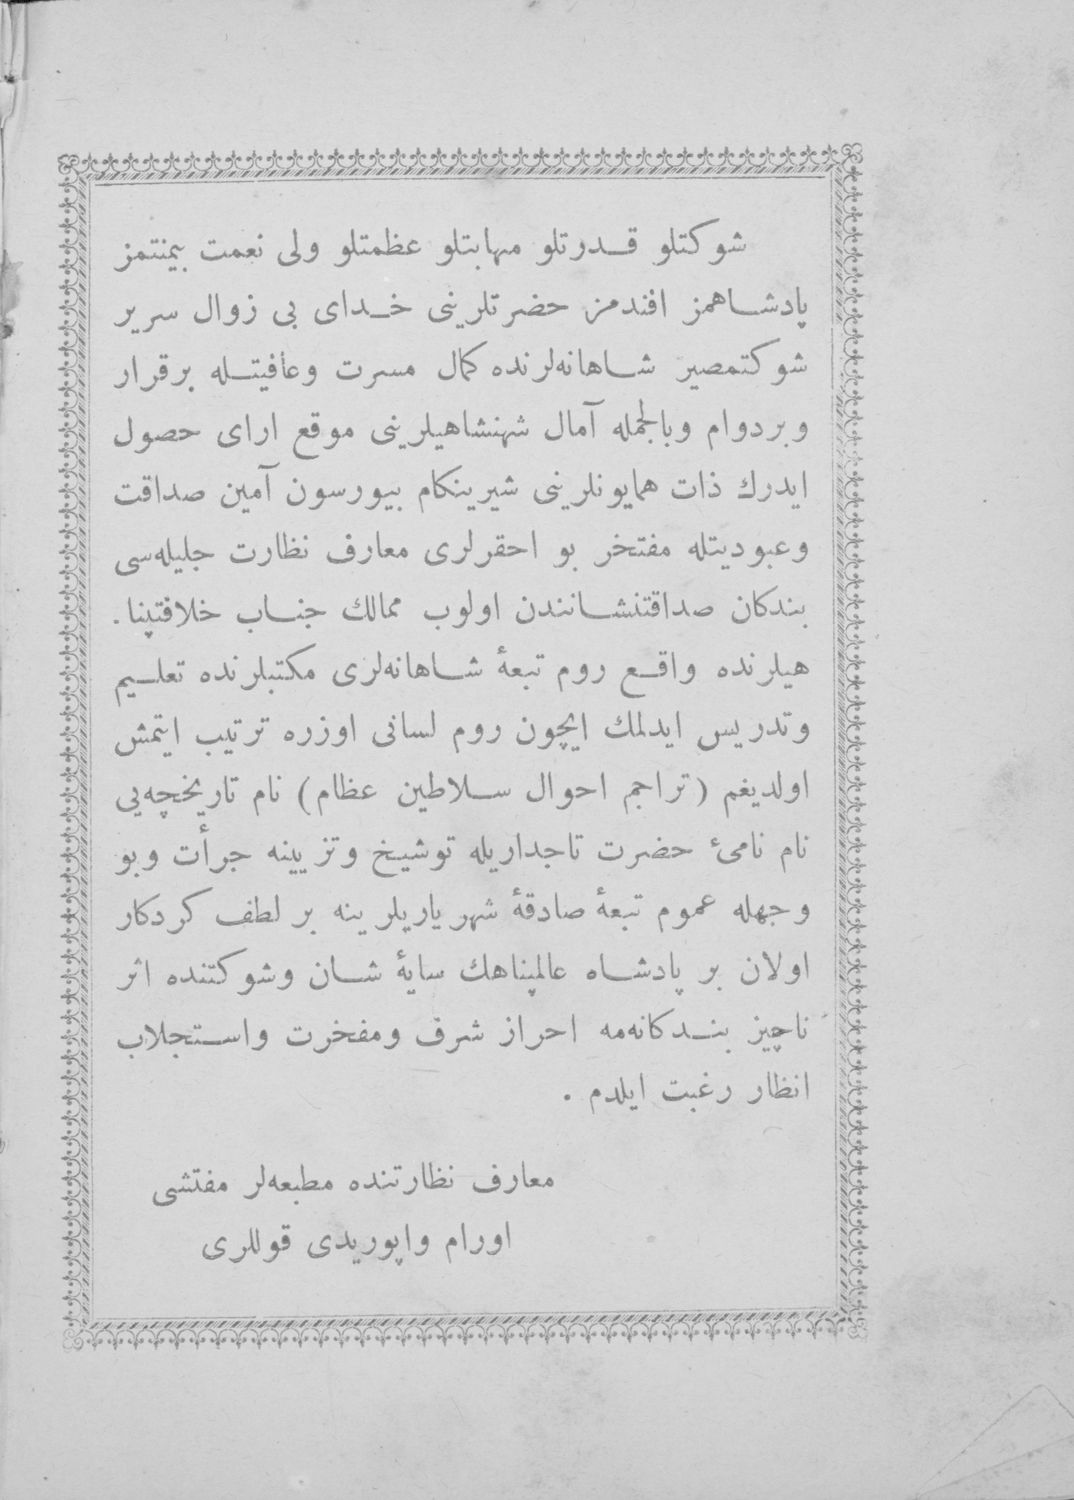 شوكتلو قدرتلو مهابتلو عظمتلو ولی نعمت بیمنتمز
پادشاهمز افندمز حضرتلرینی خدای بی زوال سریر
شوكتمصیر شاهانه‌لرنده كمال مسرت وعافیتله برقرار
وبردوام وبالجمله آمال شهنشاهیلرینی موقع ارای حصول
ایدرك ذات همایونلرینی شیرینكام بیورسون آمین صداقت
وعبودیتله مفتخر بو احقرلری معارف نظارت جلیله‌سی
بندكان صداقتنشانندن اولوب ممالك جناب خلافتپنا.
هیلرنده واقع روم تبعهٔ شاهانه‌لری مكتبلرنده تعلیم
وتدریس ایدلمك ایچون روم لسانی اوزره ترتیب ایتمش
اولدیغم (تراجم احوال سلاطین عظام) نام تاریخچه‌یی
نام نامیٔ حضرت تاجداریله توشیخ وتزیینه جرأت وبو
وجهله عموم تبعهٔ صادقهٔ شهریاریلرینه بر لطف كردكار
اولان بر پادشاه عالمپناهك سایهٔ شان وشوكتنده اثر
ناچیز بندكانه‌مه احراز شرف ومفخرت واستجلاب
انظار رغبت ایلدم .
معارف نظارتنده مطبعه‌لر مفتشی
اورام واپوریدی قوللری